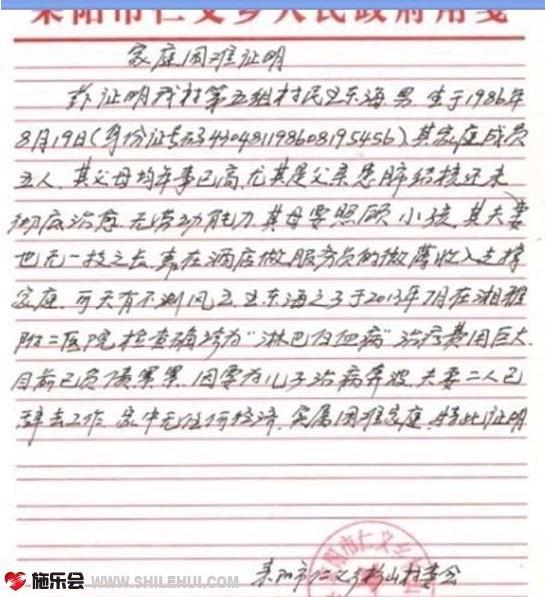 耒阳市仁义乡人民政府用笺
家庭困难证明
兹证明我村第五组村民王东海,男,生于1986年
8月19日(身份证号码430481198608195456),其家庭成员
五人,其父母均年事已高,尤其是父亲患肺结核还未
彻底治愈,无劳动能力,其母要照顾小孩,其夫妻
也无一技之长,靠在酒店做服务员的微薄收入支撑
家庭,可天有不测风云,王东海之子于2013年7月在湘雅
附二医院检查确诊为“淋巴白血病”治疗费用巨大
目前已负债累累,因要为儿子治病奔波,夫妻二人已
辞去工作,家中无任何经济,实属困难家庭,特此证明
耒阳市仁义乡杉山村委会
阳市仁义乡
施乐会
WWW.SHILEHUI.COM